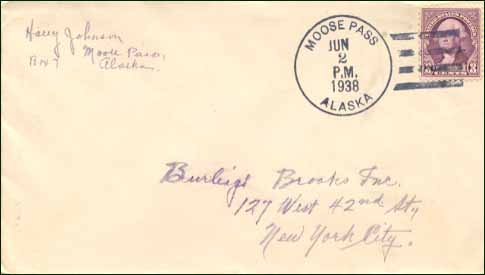 Harry Johnson
Moose Pass,
Box 7
Alaska.
MOOSE PASS
JUN
2
P.M.
1938
ALASKA
3
Burleigh Brooks Inc.
127 West 42nd St.,
New York City.